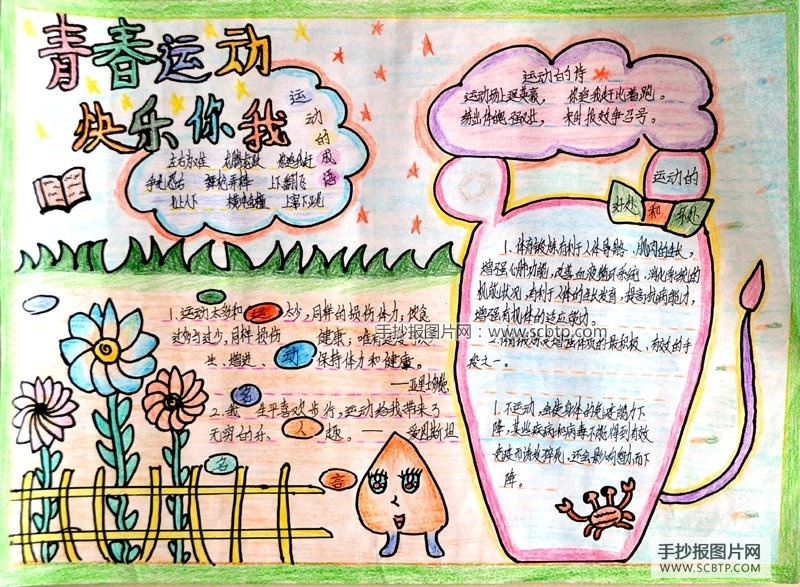 青春运动
快乐你我
运动的成语
左右开弓 龙腾虎跃 你追我赶
手疾眼快 舞枪弄棒 上下翻飞
横冲直撞 上窜下跳
运动的诗
运动场上逞英豪， 你追我赶比着跑。
练出体魄强又壮， 来日报效争召号。
运动的
好处 和 坏处
1. 体育锻炼有利于人体骨骼、肌肉的生长，
增强心肺功能，改善血液循环系统、消化系统的
机能状况，有利于人体的生长发育，提高抗病能力，
增强有机体的适应能力。
2. 体育锻炼是增强体质的最积极、有效的手
段之一。
1. 不运动，会使身体的免疫能力下
降，某些疾病和病毒不能得到有效
下
降。
运 动 名 人 名 言
1. 运动太多和太少，同样的损伤体力，饮食
过多与过少，同样损伤 健康，唯有适度可以
生、增进、 保持体力和健康。
——亚里士多德
2. 我一生平喜欢步行，运动给我带来了
无穷的乐 趣。—— 爱因斯坦
手抄报图片网：www.scbtp.com
手抄报图片网
WWW.SCBTP.COM